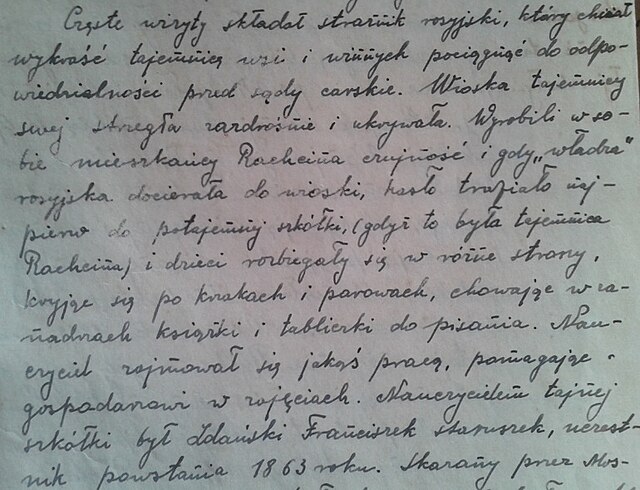 Częste wizyty składał strażnik rosyjski, który chciał
wykraść tajemnicę wsi i winnych pociągnąć do odpo-
wiedzialności przed sądy carskie. Wioska tajemnicy
swej strzegła zazdrośnie i ukrywała. Wyrobili w so-
bie mieszkańcy Rachcina czujność i gdy „władza"
rosyjska docierała do wioski, hasło trafiało naj-
pierw do potajemnej szkółki, (gdyż to była tajemnica
Rachcina) i dzieci rozbiegały się w różne strony,
kryjąc się po krzakach i parowach, chowając w za-
nadrzach książki i tabliczki do pisania. Nau-
czyciel zajmował się jakąś pracą, pomagając
gospodarzowi w zajęciach. Nauczycielem tajnej
szkółki był Zdański Franciszek staruszek, uczest-
nik powstania 1863 roku. Skazany przez Mos-